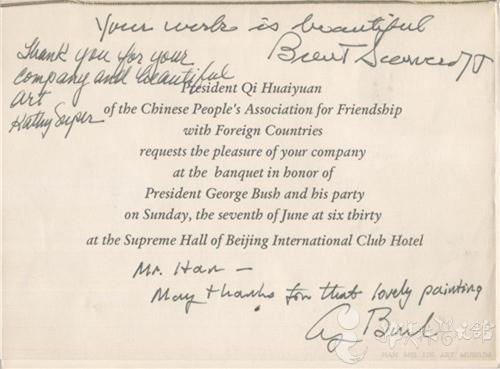 Your work is beautiful
Brent Scowcroft
Thank you for your
company and beautiful
art
Kathy Super
President Qi Huaiyuan
of the Chinese People's Association for Friendship
with Foreign Countries
requests the pleasure of your company
at the banquet in honor of
President George Bush and his party
on Sunday, the seventh of June at six thirty
at the Supreme Hall of Beijing International Club Hotel
Mr. Han —
Many thanks for that lovely painting
G Bush
HAN MEI LIN ART MUSEUM